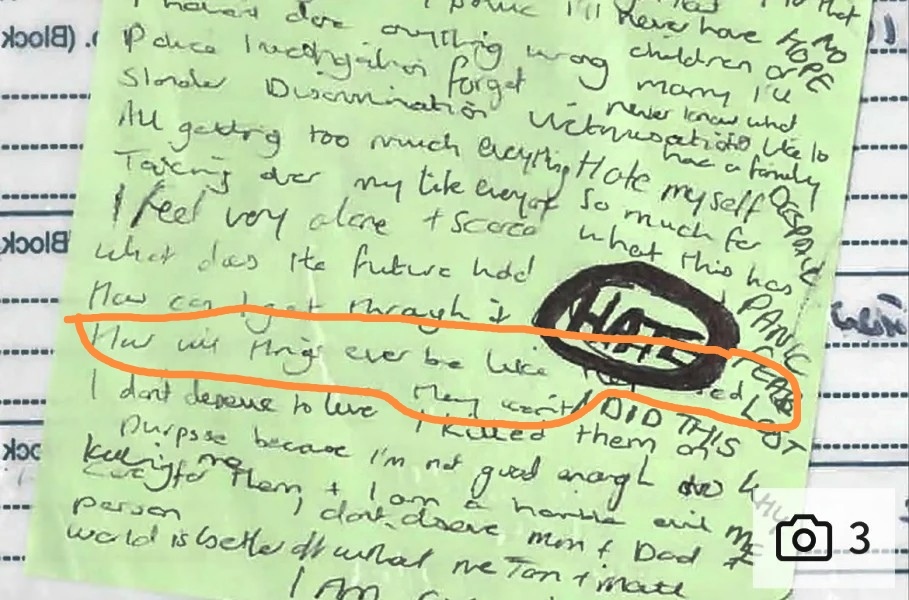 never have NO
HOPE
I haven't done anything wrong children or
Police Investigation forget marry I'll
never know what
Slander Discrimination like to
have a family
All getting too much everything Hate myself DESPAIR
Taking over my life everyday so much for
I feel very alone + scared what this has
what does the future hold
PANIC
How can I get through it HATE
How will things ever be like they used FEAR
They won't I DID THIS LOST
I don't deserve to live I killed them on
purpose because I'm not good enough to
care for them + I am a horrible evil
killing me
person I don't deserve mum + Dad
world is better off without me
I AM
3